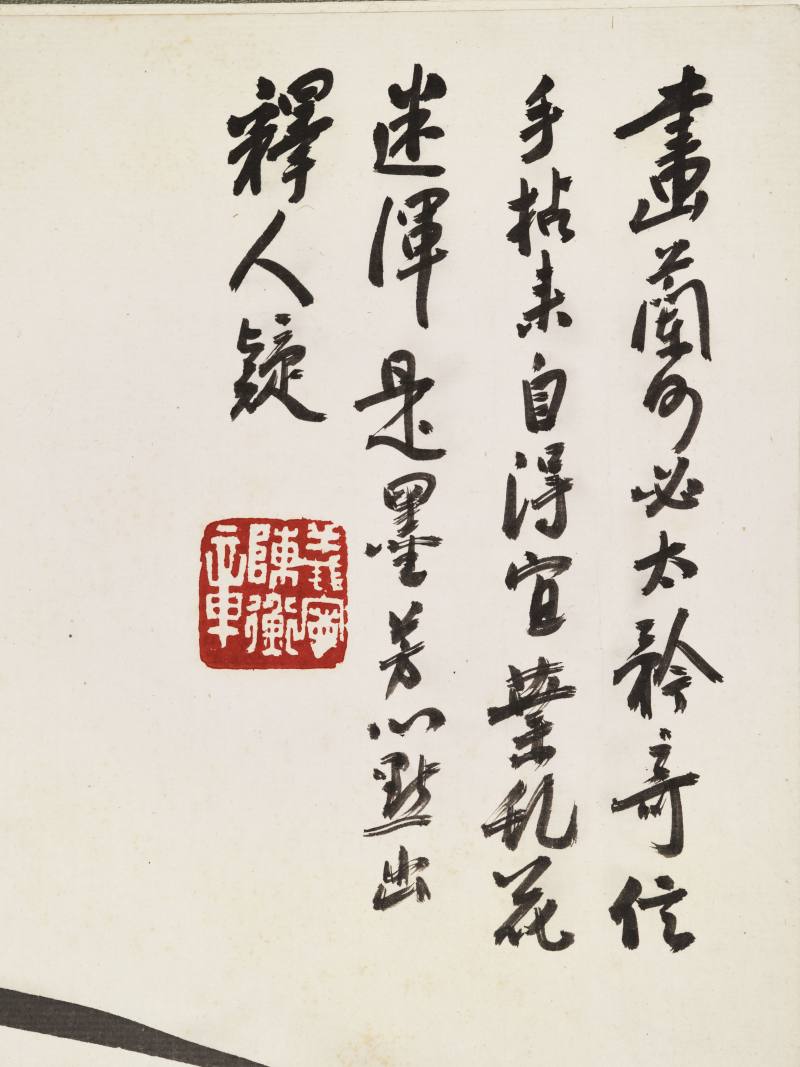 畫蘭何必太矜奇信
手拈来自得宜葉乱花
迷渾是墨芳心點出
釋人疑
義寧
陳衡